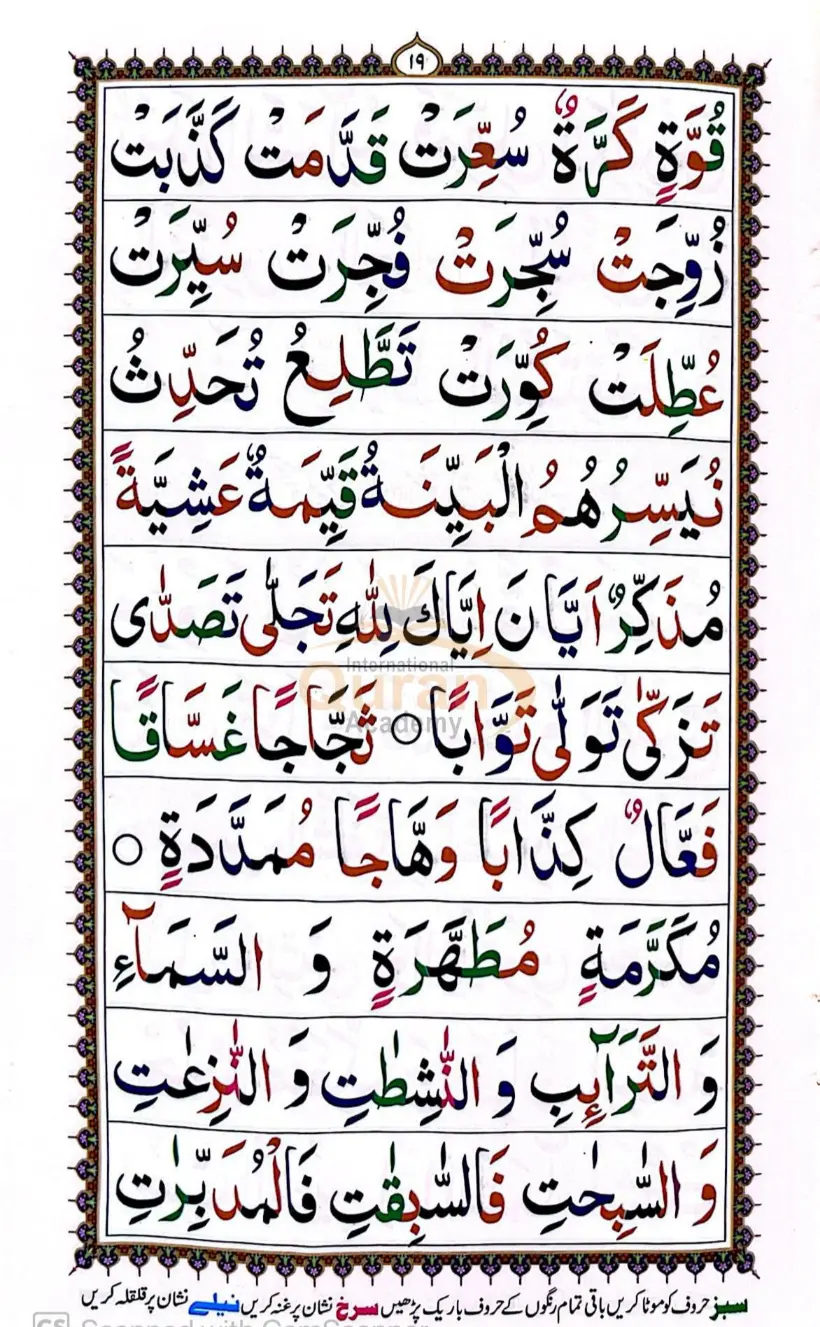 ١٩
قُوَّةٍ كَرَّةٌ سُعِّرَتْ قَدَّمَتْ كَذَّبَتْ
زُوِّجَتْ سُجِّرَتْ فُجِّرَتْ سُيِّرَتْ
عُطِّلَتْ كُوِّرَتْ تَطَّلِعُ تُحَدِّثُ
نُيَسِّرُ هُمُ الْبَيِّنَةُ قَيِّمَةٌ عَشِيَّةً
مُذَكِّرٌ اَيَّانَ اِيَّاكَ لِلّٰهِ تَجَلّٰى تَصَدّٰى
تَزَكّٰى تَوَلّٰى تَوَّابًا ○ ثَجَّاجًا غَسَّاقًا
فَعَّالٌ كِذَّابًا وَهَّاجًا مُمَدَّدَةٍ ○
مُكَرَّمَةٍ مُطَهَّرَةٍ وَ السَّمَآءِ
وَ التَّرَآئِبِ وَ النّٰشِطٰتِ وَ النّٰزِعٰتِ
وَ السّٰبِحٰتِ فَالسّٰبِقٰتِ فَالْمُدَبِّرٰتِ
International
Quran
Academy
سبز حروف کو موٹا کریں باقی تمام رنگوں کے حروف باریک پڑھیں سرخ نشان پر غنہ کریں نیلے نشان پر قلقلہ کریں
CS Scanned with CamScanner